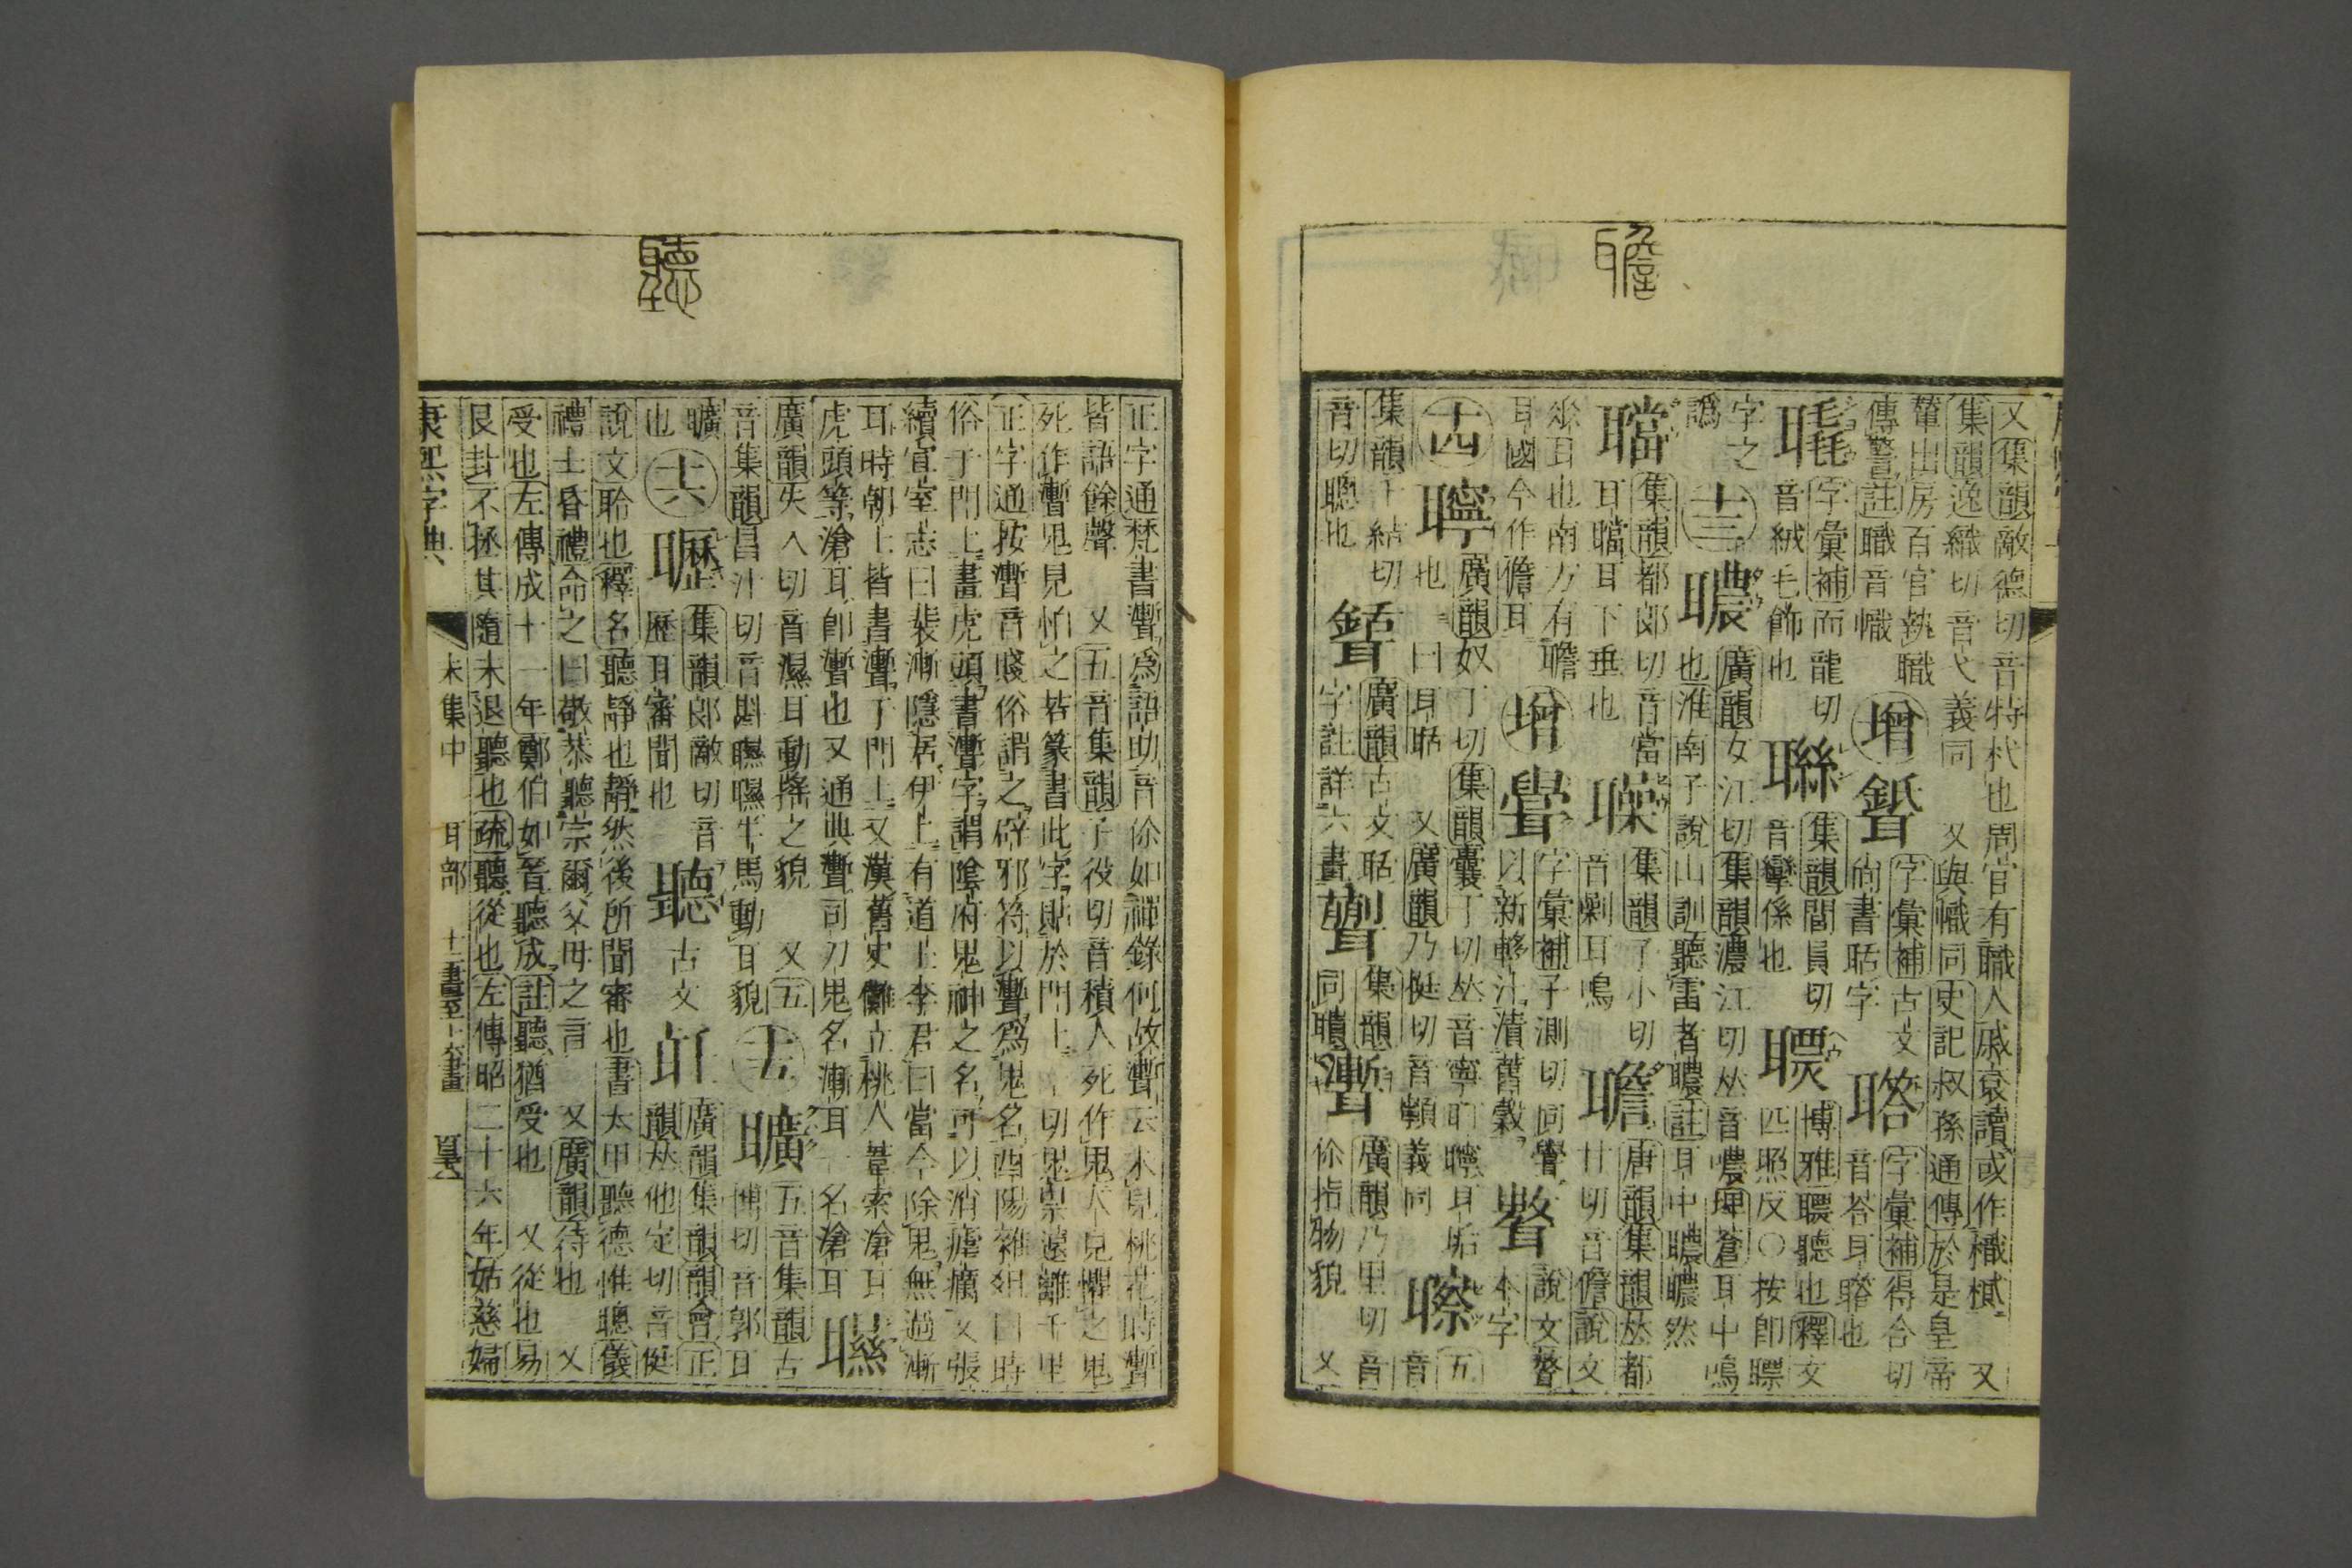 聸
又集韻敵德切音特杙也周官有職人戚袞讀或作樴㮨 又
集韻逸織切音弋義同 又與幟同史記叔孫通傳於是皇帝
輦出房百官執職
傳警註職音幟
增
字彙補古文
尙書聒字
字彙補得合切
音荅耳
字彙補而龍切
音絨毛飾也
聮
集韻閭員切
音攣係也
博雅聽也釋文
匹照反〇按卽瞟
字之
譌
十三
廣韻女江切集韻濃江切𠀤音噥埤蒼耳中鳴
也淮南子說山訓聽雷者註耳中然
集韻都郎切音當
耳下垂也
集韻子小切
音剿耳鳴
聸
唐韻集韻𠀤都
甘切音儋說文
𠂹耳也南方有聸
耳國今作儋耳
增
字彙補子測切同
以新轑汁漬舊穀
說文
本字
十四
聹
廣韻奴丁切集韻囊丁切𠀤音寧耵聹耳垢
也一曰耳聒 又廣韻乃梃切音顊義同
五音
集韻丁結切
音切聰也
廣韻古文聒
字註詳六畫
集韻
同聵
䎾
廣韻乃里切音
伱指物貌 又
聽
正字通梵書聻爲語助音伱如禪錄何故聻云未見桃花時聻
皆語餘聲 又五音集韻子役切音積人死作鬼人見懼之鬼
死作聻鬼見怕之若篆書此字貼於門上一切鬼祟遠離千里
正字通按聻音賤俗謂之辟邪符以聻爲鬼名酉陽雜俎曰時
俗于門上畫虎頭書聻字謂陰府鬼神之名可以消瘧癘又張
續宣室志曰裴漸隱居伊上有道士李君曰當今除鬼無過漸
耳時朝士皆書聻于門上又漢舊史儺立桃人葦索滄耳
虎頭等滄耳卽聻也又通典聻司刀鬼名漸耳一名滄耳
廣韻失入切音濕耳動搖之貌 又五音集韻古
音集韻昌汁切音牛馬動耳貌
十五
博切音郭耳
曠
也
十六
集韻郞敵切音
歷耳審聞也
聽
古文
廣韻集韻韻會正
韻𠀤他定切音侹
說文聆也釋名聽靜也靜然後所聞審也書太甲聽德惟聰儀
禮士昏禮命之曰敬恭聽宗爾父母之言 又廣韻待也 又
受也左傳成十一年鄭伯如晉聽成註聽猶受也 又從也易
艮卦不拯其隨未退聽也疏聽從也左傳昭二十六年姑慈婦
康熙字典
未集中
耳部
十二畫至十六畫